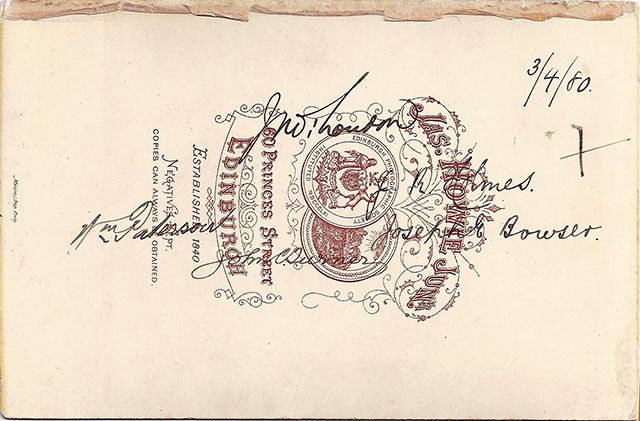 3/4/80.
Jno. Loudon
J. R. Holmes.
Wm Paterson
Joseph E Bowser.
John C. Turner
JAS. HOWIE JUNR
EDINBURGH PHOTOGRAPHIC SOCIETY
INSTITUTED
60 PRINCES STREET
EDINBURGH
ESTABLISHED 1840
NEGATIVES KEPT.
COPIES CAN ALWAYS BE OBTAINED.